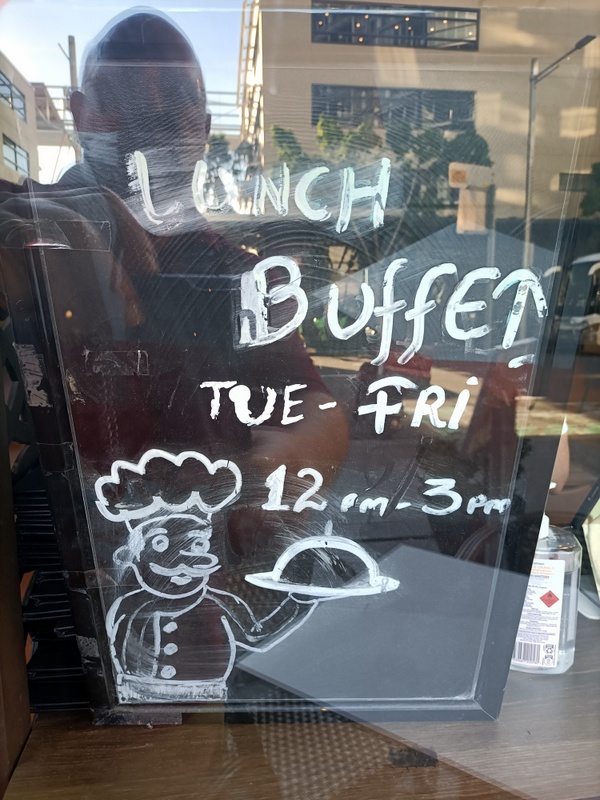 LUNCH
BuffET
TUE - FRi
12 pm - 3 pm